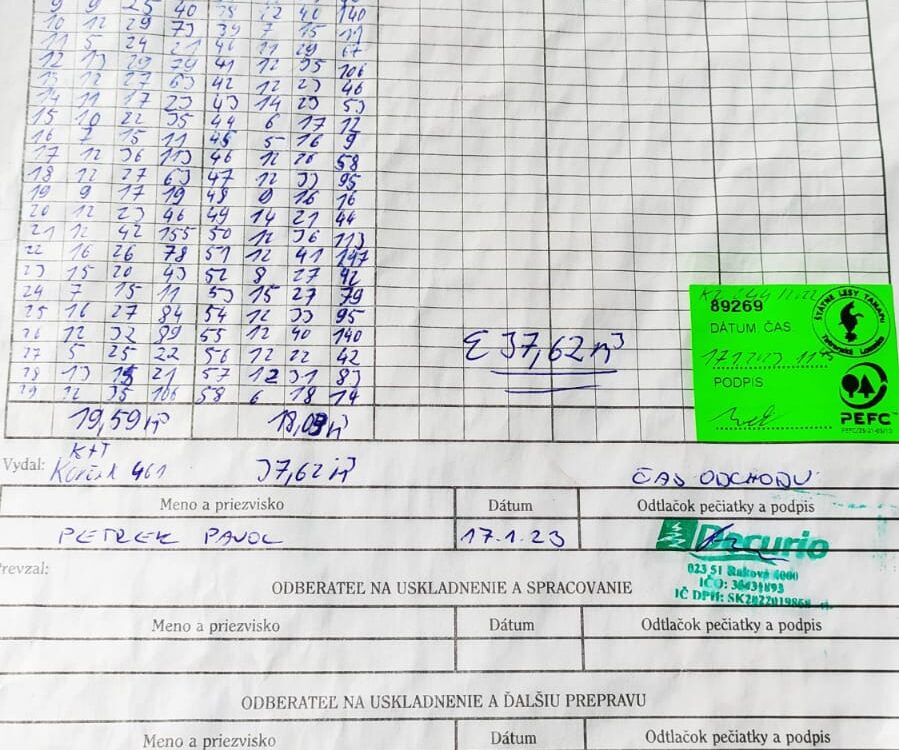 9 9 25 40 38 12 40 140
10 12 29 73 39 7 15 11
11 5 24 21 40 11 29 67
12 13 29 79 41 12 35 106
13 12 27 63 42 12 23 46
14 11 17 23 43 14 23 53
15 10 22 35 44 6 17 12
16 7 15 11 45 5 16 9
17 12 36 113 46 12 26 58
18 12 27 63 47 12 33 95
19 9 17 19 48 8 16 16
20 12 23 46 49 14 21 44
21 12 42 155 50 12 36 113
22 16 26 78 51 12 41 147
23 15 20 43 52 8 27 42
24 7 15 11 53 15 27 79
25 16 27 84 54 12 33 95
26 12 32 89 55 12 40 140
27 5 25 22 56 12 22 42
28 13 15 21 57 12 31 83
29 12 35 106 58 6 18 14
19,59 m³ 18,03 m³
Σ 37,62 m³
89269
ŠTÁTNE LESY TANAPU
DÁTUM ČAS
PODPIS
PEFC
Vydal: 461 37,62 m³
ČAS ODCHODU
Meno a priezvisko Dátum Odtlačok pečiatky a podpis
PETREK PAVOL 17.1.23
Decurio
023 51 Raková 4000
IČO: 36431893
IČ DPH:
Prevzal:
ODBERATEĽ NA USKLADNENIE A SPRACOVANIE
Meno a priezvisko Dátum Odtlačok pečiatky a podpis
ODBERATEĽ NA USKLADNENIE A ĎALŠIU PREPRAVU
Meno a priezvisko Dátum Odtlačok pečiatky a podpis